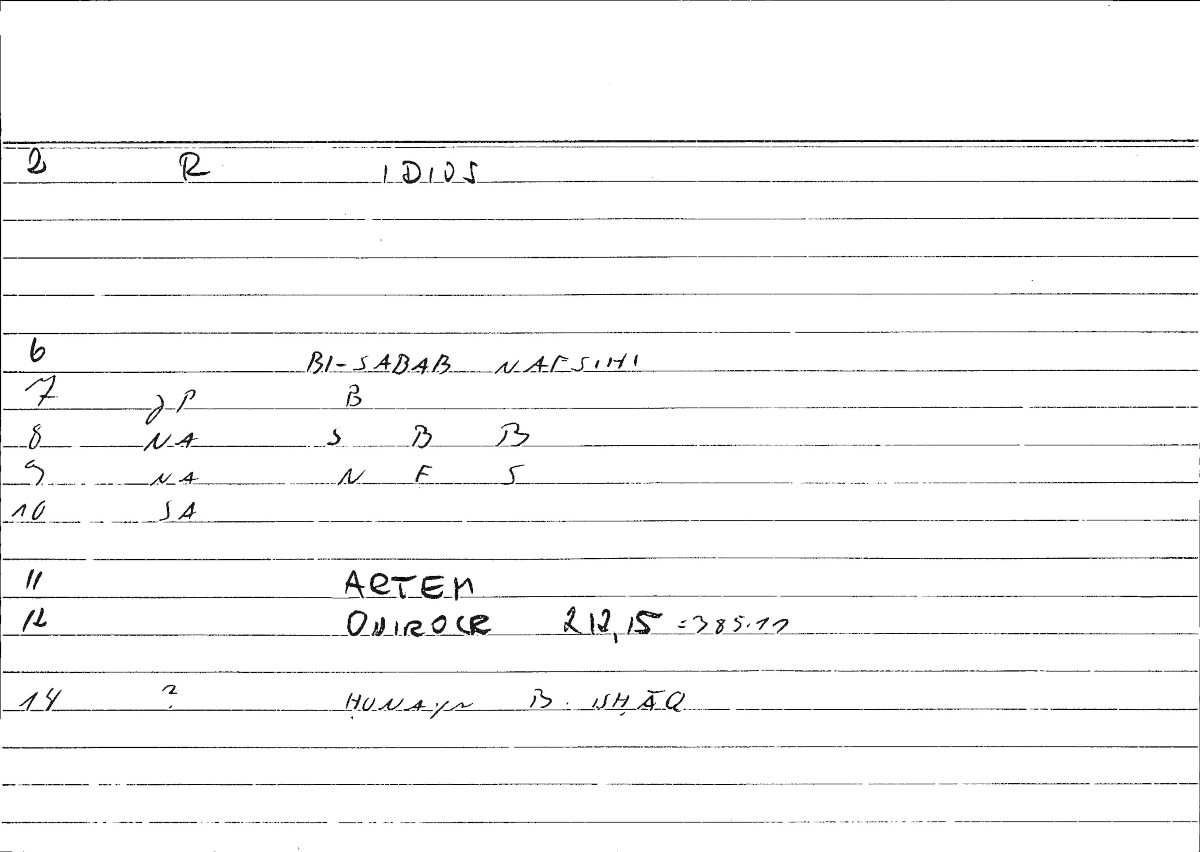 2 R IDIOS
6 BI-SABAB NAFSIHI
7 JP B
8 NA S B B
9 NA N F S
10 SA
11 ARTEM
12 ONIROCR 212,15 =385.11
14 ? ḤUNAYN B. ISḤĀQ